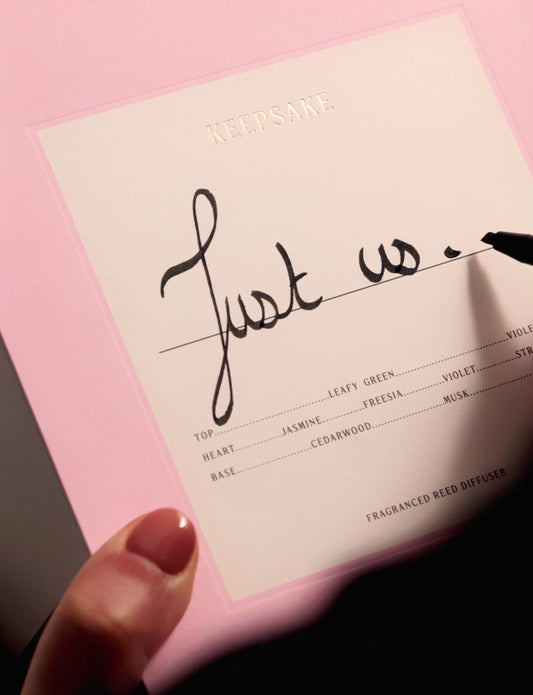 KEEPSAKE
Just us.
TOP....................LEAFY GREEN....................
HEART..........JASMINE..........FREESIA..........VIOLET..........
BASE....................CEDARWOOD....................MUSK....................
FRAGRANCED REED DIFFUSER